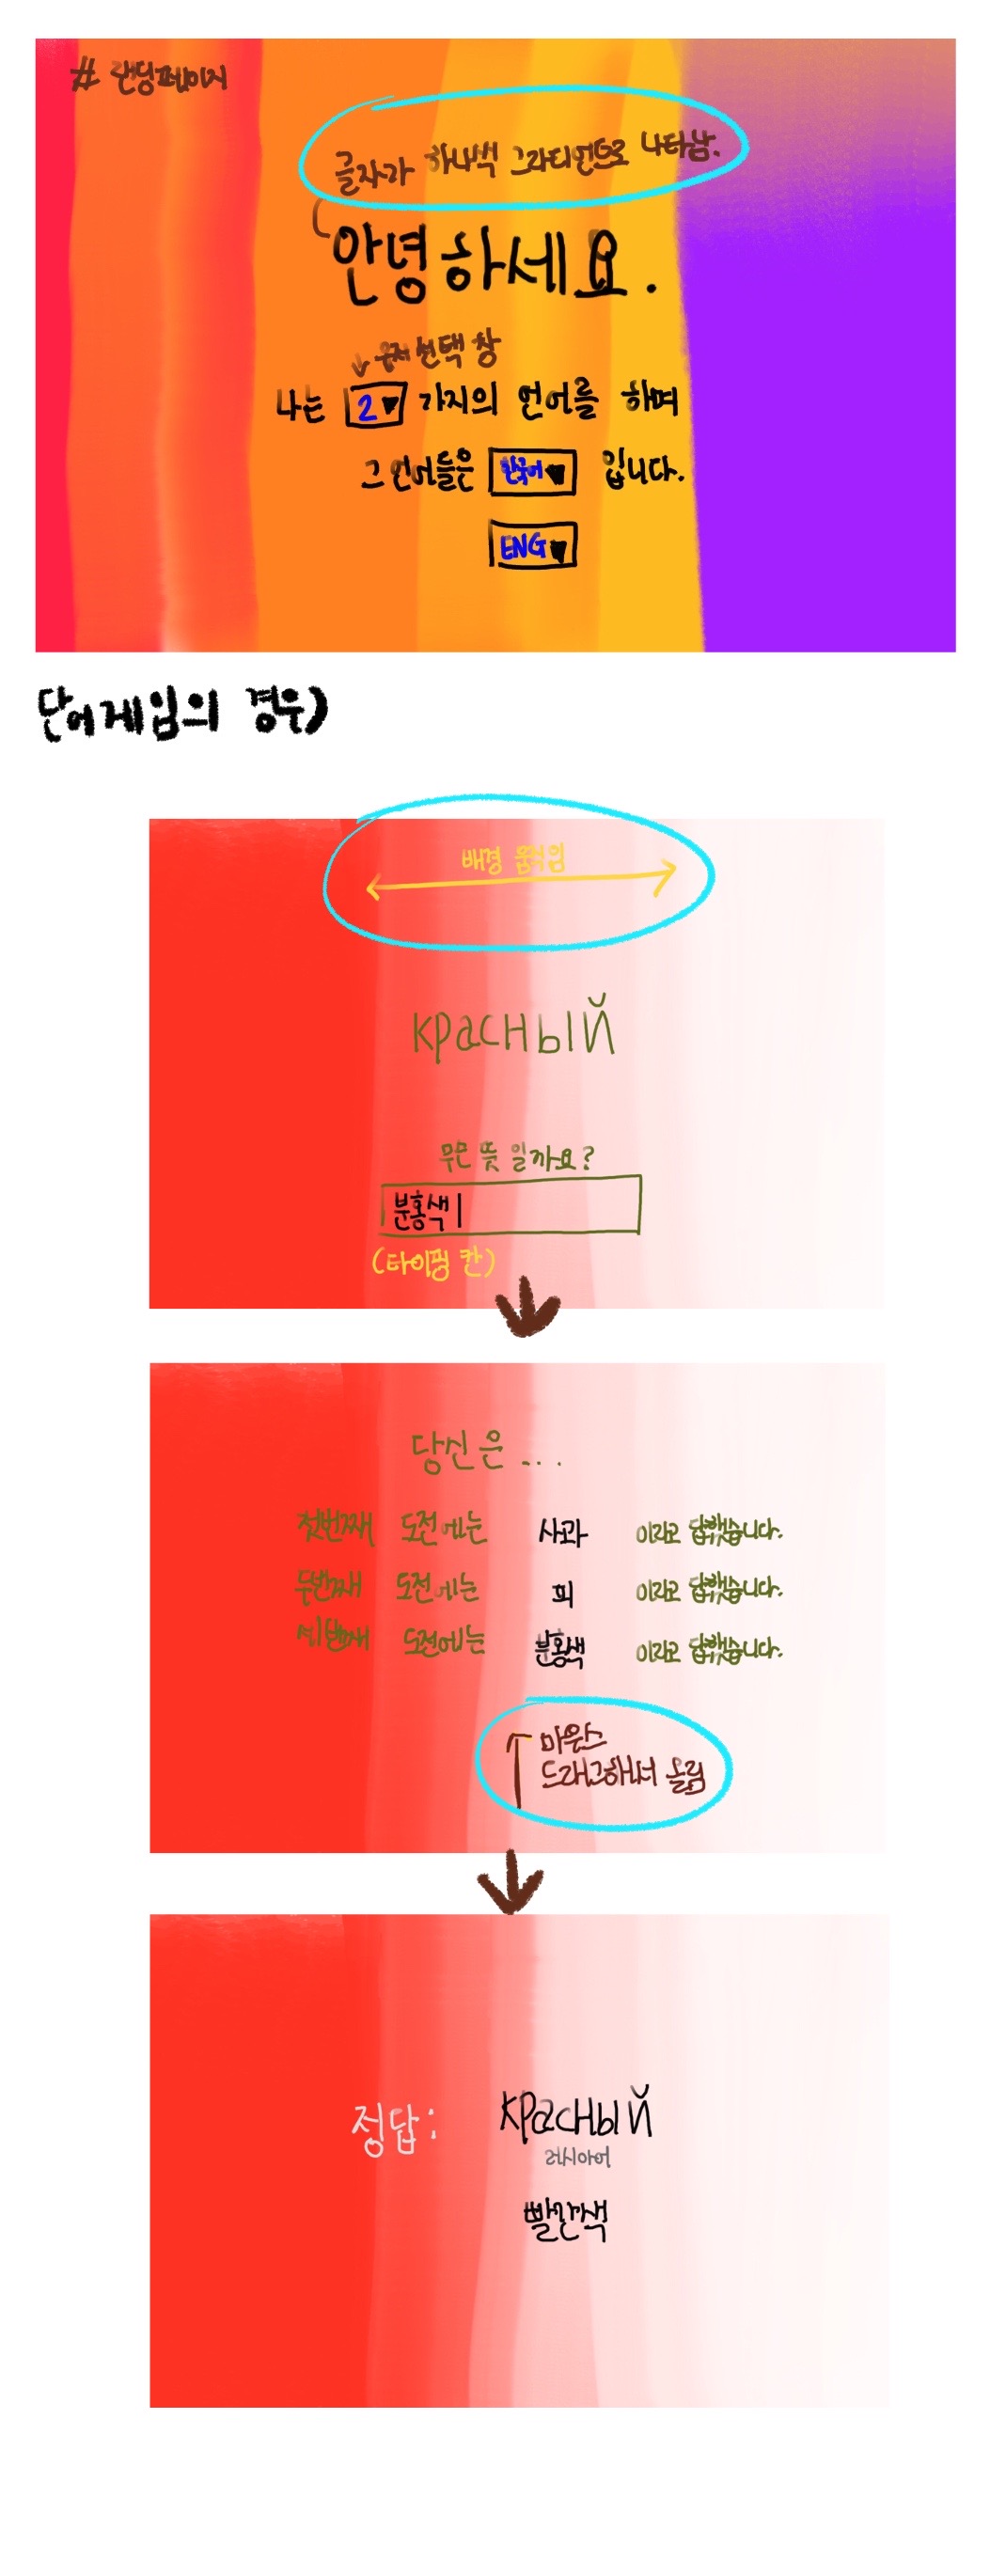 # 랜딩페이지
글자가 하나씩 그라디언트로 나타남.
안녕하세요.
선택 창
나는 2 가지의 언어를 하며
그 언어들은 한국어 입니다.
ENG
단어게임의 경우)
배경 움직임
красный
무슨 뜻 일까요?
분홍색
(타이핑 칸)
당신은 ...
첫번째 도전에는 사과 이라고 답했습니다.
두번째 도전에는 피 이라고 답했습니다.
세번째 도전에는 분홍색 이라고 답했습니다.
마우스
드래그해서 올림
정답: красный
러시아어
빨간색